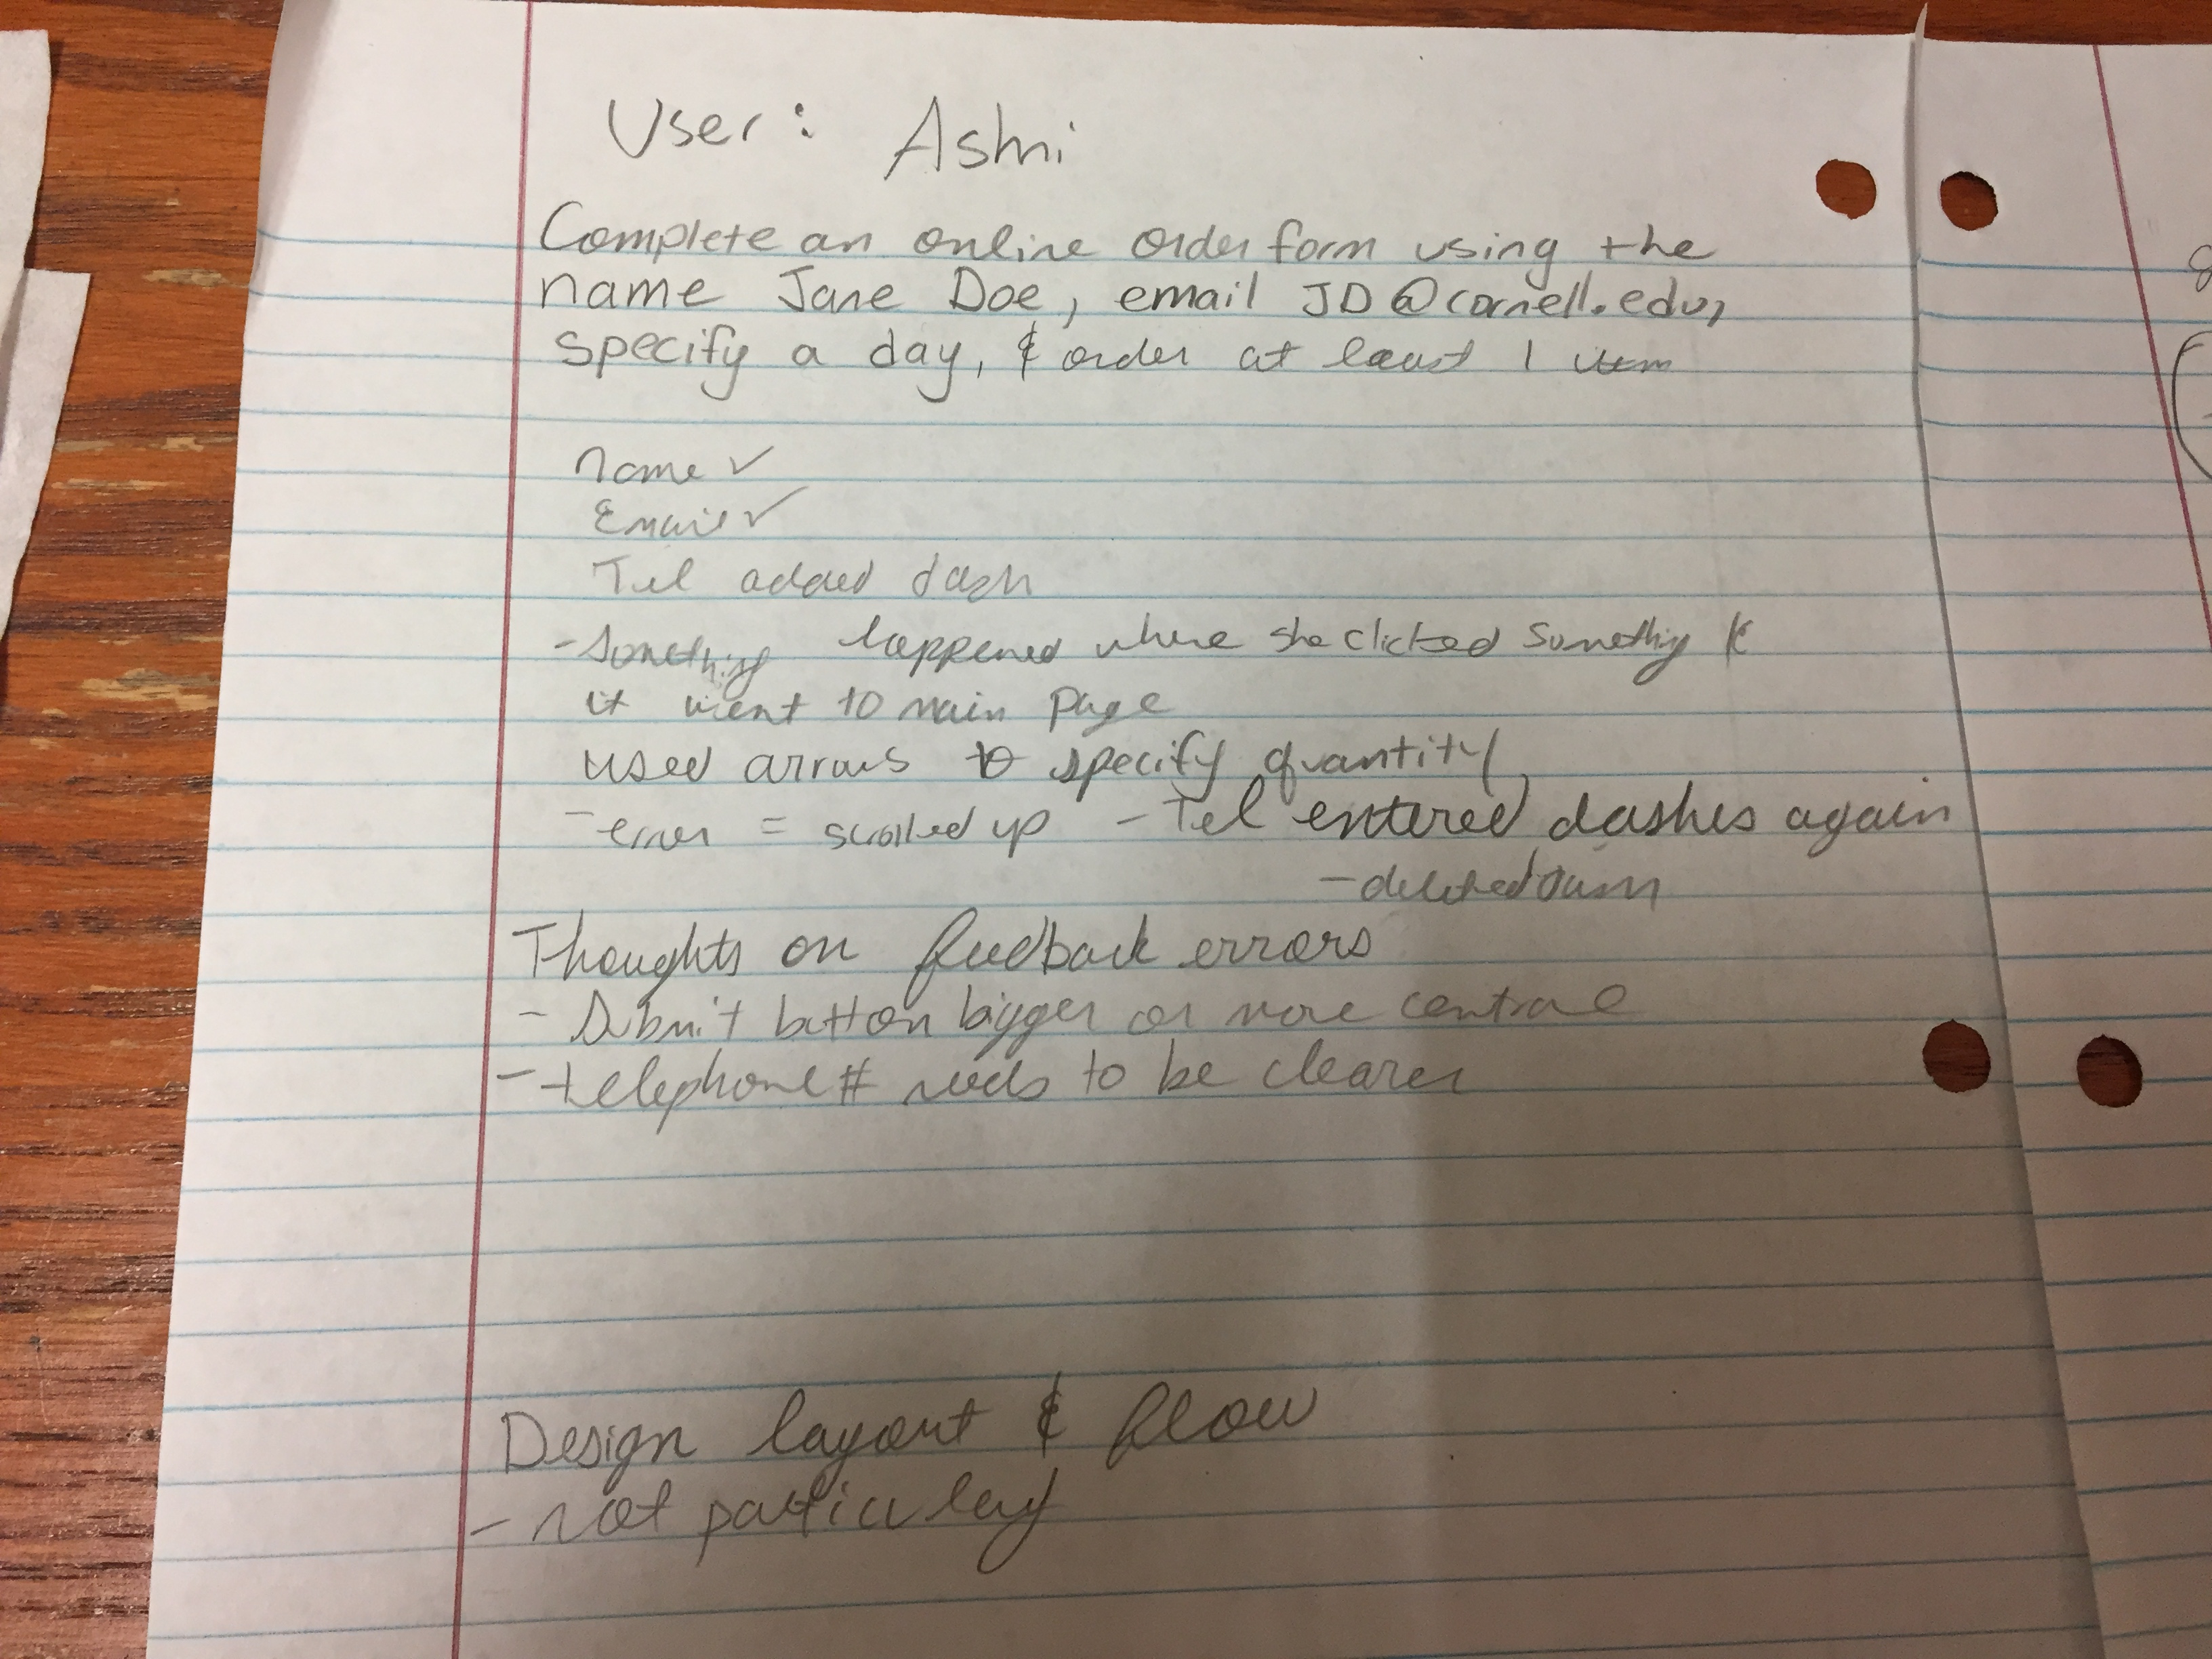 User: Ashni
Complete an online order form using the
name Jane Doe, email JD@cornell.edu,
specify a day, & order at least 1 item
name ✓
Email ✓
Tel added dash
- Something happened where she clicked something &
it went to main page
used arrows to specify quantity
- error = scrolled up - Tel entered dashes again
- deleted
Thoughts on feedback errors
- Submit button bigger or more central
- telephone # needs to be clearer
Design layout & flow
- not particulary